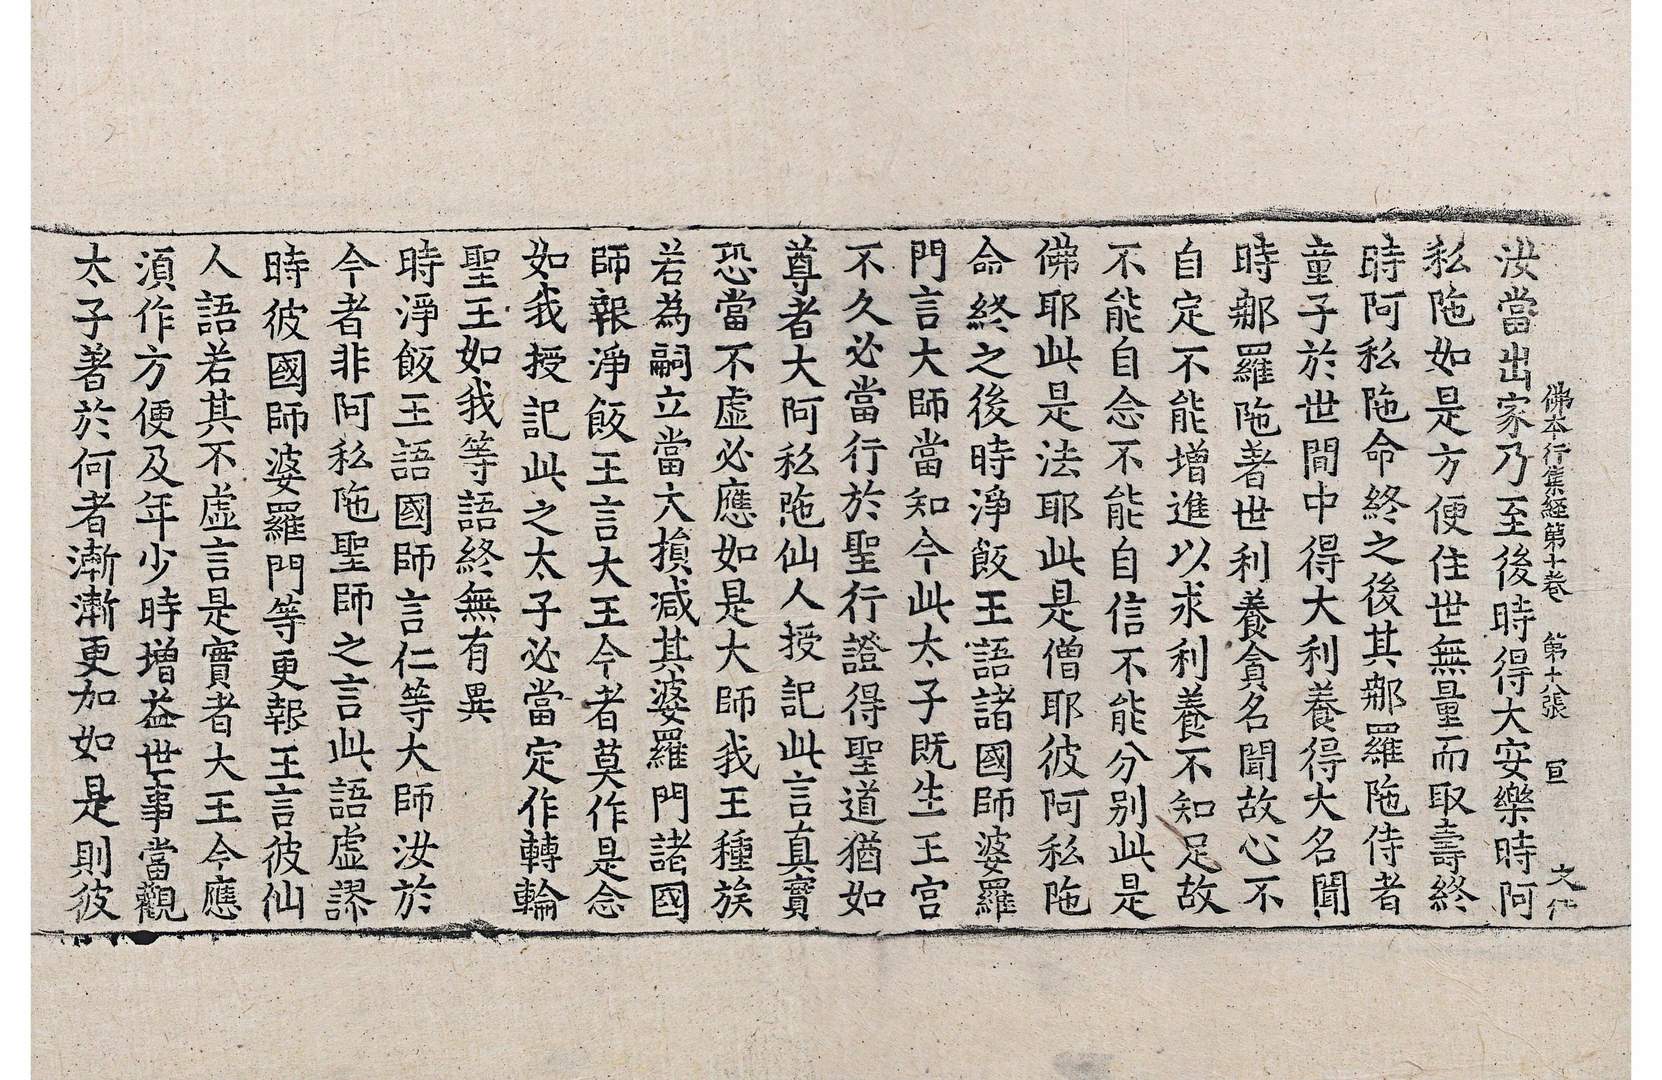 佛本行集經第十卷　第十八張　宣
汝當出家乃至後時得大安樂時阿
私陁如是方便住世無量而取壽終
時阿私陁命終之後其那羅陁侍者
童子於世間中得大利養得大名聞
時那羅陁著世利養貪名聞故心不
自定不能增進以求利養不知足故
不能自念不能自信不能分別此是
佛耶此是法耶此是僧耶彼阿私陁
命終之後時淨飯王語諸國師婆羅
門言大師當知今此太子既生王宮
不久必當行於聖行證得聖道猶如
尊者大阿私陁仙人授記此言真實
恐當不虛必應如是大師我王種族
若為嗣立當大損減其婆羅門諸國
師報淨飯王言大王今者莫作是念
如我授記此之太子必當定作轉輪
聖王如我等語終無有異
時淨飯王語國師言仁等大師汝於
今者非阿私陁聖師之言此語虛謬
時彼國師婆羅門等更報王言彼仙
人語若其不虛言是實者大王今應
須作方便及年少時增益世事當觀
太子著於何者漸漸更加如是則彼